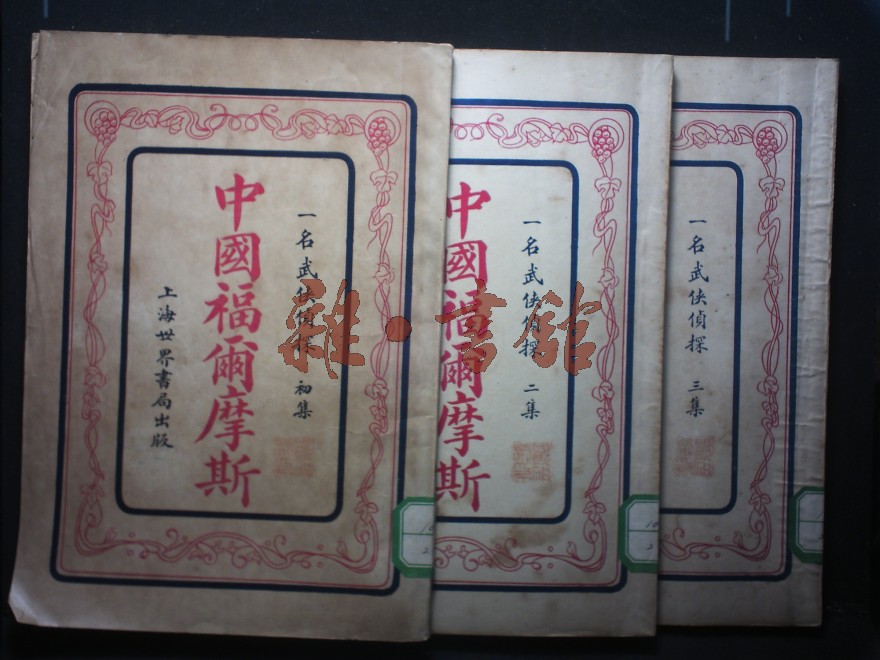 一名武俠偵探 初集
中國福爾摩斯
上海世界書局出版
一名武俠偵探 二集
中國福爾摩斯
一名武俠偵探 三集
雜·書館